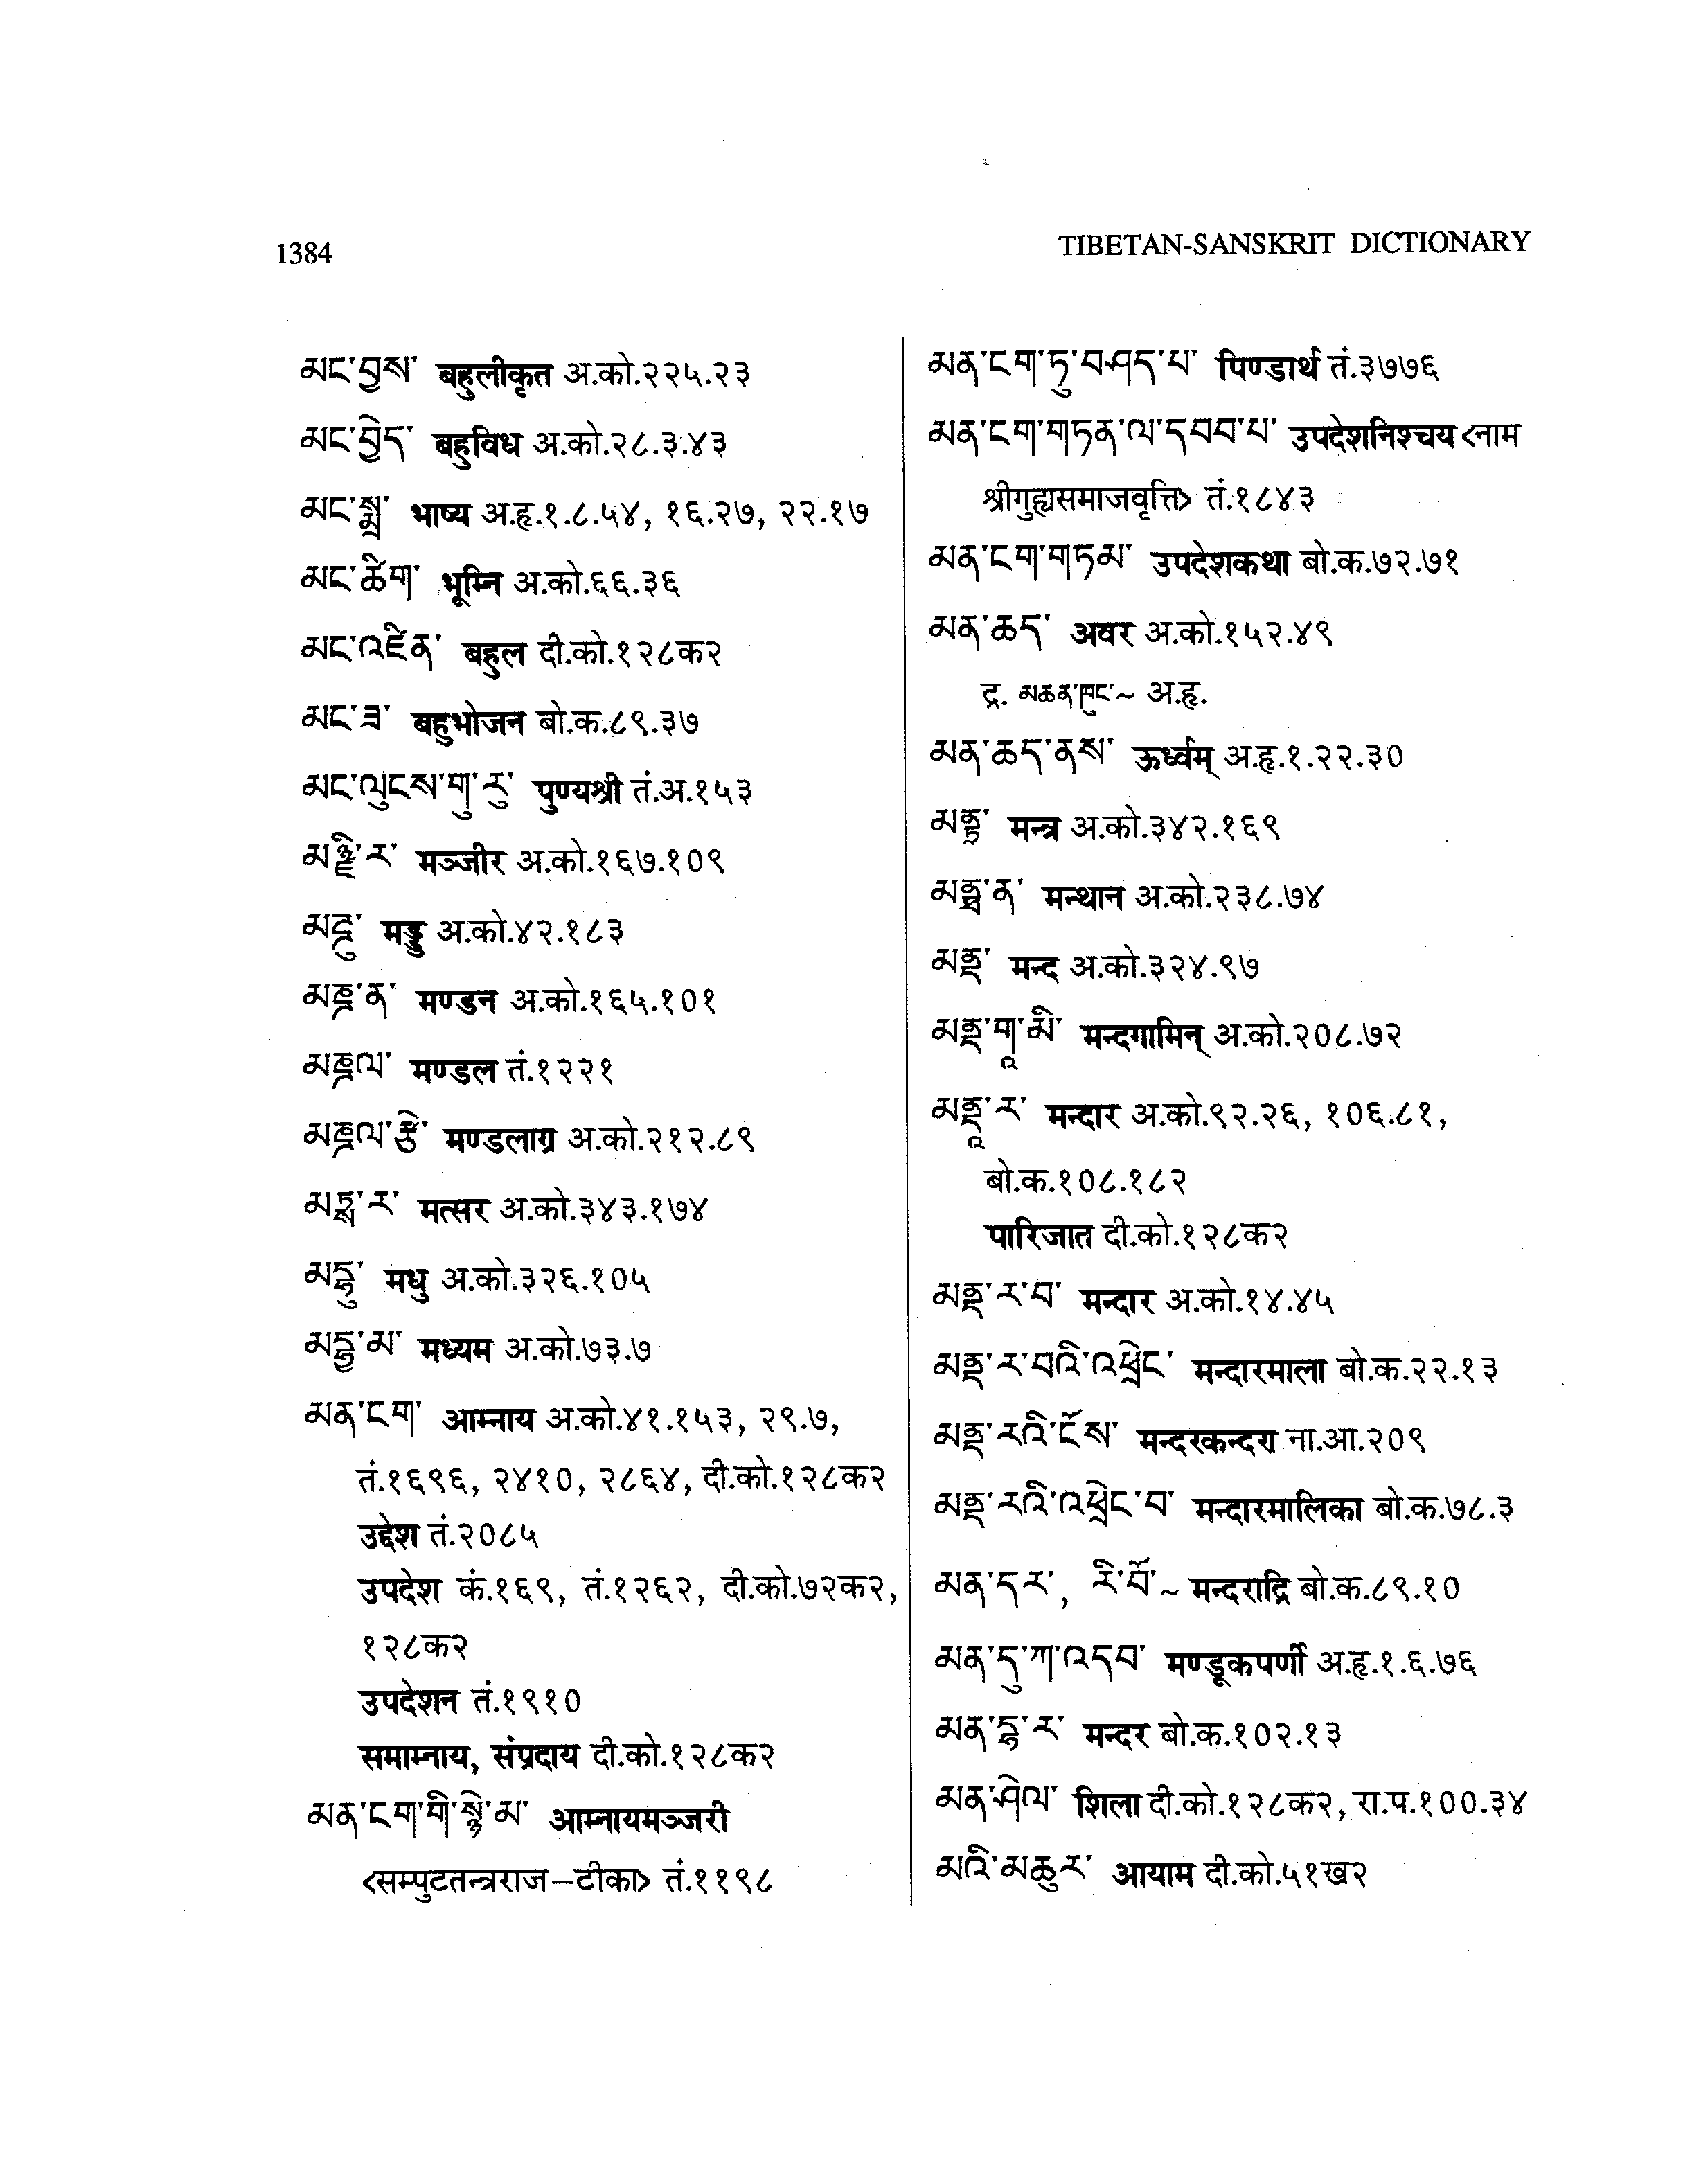 1384
TIBETAN-SANSKRIT DICTIONARY
མང་བྱས་ बहुलीकृत अ.को.२२५.२३
མང་བྱེད་ बहुविध अ.को.२८.३.४३
མང་སྨྲ་ भाष्य अ.हृ.१.८.५४, १६.२७, २२.१७
མང་ཚིག་ भूम्नि अ.को.६६.३६
མང་འཛིན་ बहुल दी.को.१२८क२
མང་ཟ་ बहुभोजन बो.क.८९.३७
མང་ལུངས་གུ་རུ་ पुण्यश्री तं.अ.१५३
མཉྫི་ར་ मञ्जीर अ.को.१६७.१०९
མཌྜུ་ मड्डु अ.को.४२.१८३
མཎྜ་ན་ मण्डन अ.को.१६५.१०१
མཎྜལ་ मण्डल तं.१२२१
མཎྜལ་རྩེ་ मण्डलाग्र अ.को.२१२.८९
མཏྶ་ར་ मत्सर अ.को.३४३.१७४
མདྷུ་ मधु अ.को.३२६.१०५
མདྷྱ་མ་ मध्यम अ.को.७३.७
མན་ངག་ आम्नाय अ.को.४१.१५३, २९.७,
तं.१६९६, २४१०, २८६४, दी.को.१२८क२
उद्देश तं.२०८५
उपदेश कं.१६९, तं.१२६२, दी.को.७२क२,
१२८क२
उपदेशन तं.१९१०
समाम्नाय, संप्रदाय दी.को.१२८क२
མན་ངག་གི་སྙེ་མ་ आम्नायमञ्जरी
<सम्पुटतन्त्रराज–टीका> तं.११९८
མན་ངག་ཏུ་བཤད་པ་ पिण्डार्थ तं.३७७६
མན་ངག་གཏན་ལ་དབབ་པ་ उपदेशनिश्चय <नाम
श्रीगुह्यसमाजवृत्ति> तं.१८४३
མན་ངག་གཏམ་ उपदेशकथा बो.क.७२.७१
མན་ཆད་ अवर अ.को.१५२.४९
द्र. མཆན་ཁུང་~ अ.हृ.
མན་ཆད་ནས་ ऊर्ध्वम् अ.हृ.१.२२.३०
མནྟྲ་ मन्त्र अ.को.३४२.१६९
མནྠ་ན་ मन्थान अ.को.२३८.७४
མནྡ་ मन्द अ.को.३२४.९७
མནྡ་གཱ་མི་ मन्दगामिन् अ.को.२०८.७२
མནྡཱ་ར་ मन्दार अ.को.९२.२६, १०६.८१,
बो.क.१०८.१८२
पारिजात दी.को.१२८क२
མནྡ་ར་བ་ मन्दार अ.को.१४.४५
མནྡ་ར་བའི་འཕྲེང་ मन्दारमाला बो.क.२२.१३
མནྡ་རའི་ངོས་ मन्दरकन्दरा ना.आ.२०९
མནྡ་རའི་འཕྲེང་བ་ मन्दारमालिका बो.क.७८.३
མན་དར་, རི་བོ་~ मन्दराद्रि बो.क.८९.१०
མན་དུ་ཀ་འདབ་ मण्डूकपर्णी अ.हृ.१.६.७६
མན་དྷ་ར་ मन्दर बो.क.१०२.१३
མན་ཤེལ་ शिला दी.को.१२८क२, रा.प.१००.३४
མའི་མཆུར་ आयाम दी.को.५१ख२